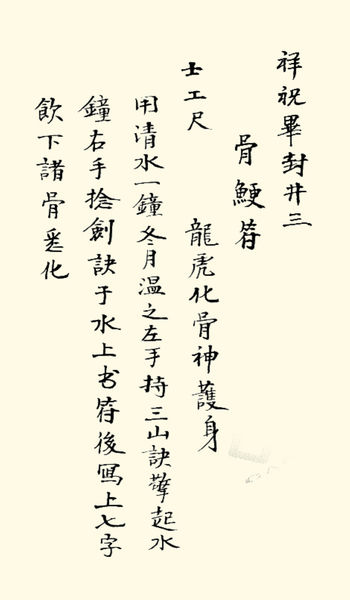 祥祝畢封井三
骨鯁符
士工尺 龍虎化骨神護身
用清水一鐘冬月溫之左手持三山訣擎起水
鐘右手捻劍訣于水上书符後寫上七字
飲下諸骨悉化